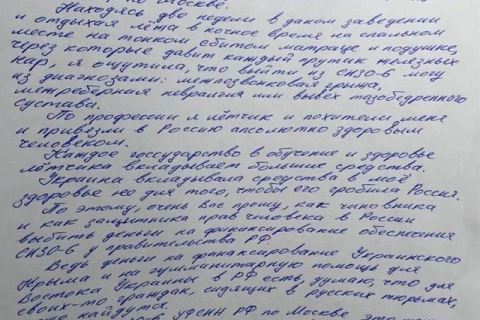 по Москве.
Находясь две недели в даном заведении
и отдыхая лёжа в ночное время на спальном
месте на тонком сбитом матраце и подушке,
через которые давит каждый прутик железных
нар, я ощутила, что выйти из СИЗО-6 могу
из диагнозами: межпозвонковая грыжа,
межреберная невралгия или вывех тазобедренного
сустава.
По профессии я лётчик и похители меня
и привезли в Россию апсолютно здоровым
человеком.
Каждое госсударство в обучение и здоровье
лётчика вкладывает большие средства.
Украина вкладывала средства в моё
здоровье не для того, чтобы его гробила Россия.
По этому, очень Вас прошу, как чиновника
и как защитника прав человека в России
выбить деньги на финансирование обеспечения
СИЗО-6 у правительства РФ.
Ведь деньги на финансирование Украинского
Крыма и на гумманитарную помощь для
Востока Украины в РФ есть, думаю, что для
своих-то граждан, сидящих в русских тюрьмах,
тоже найдутся.
УФСИН РФ по Москве это